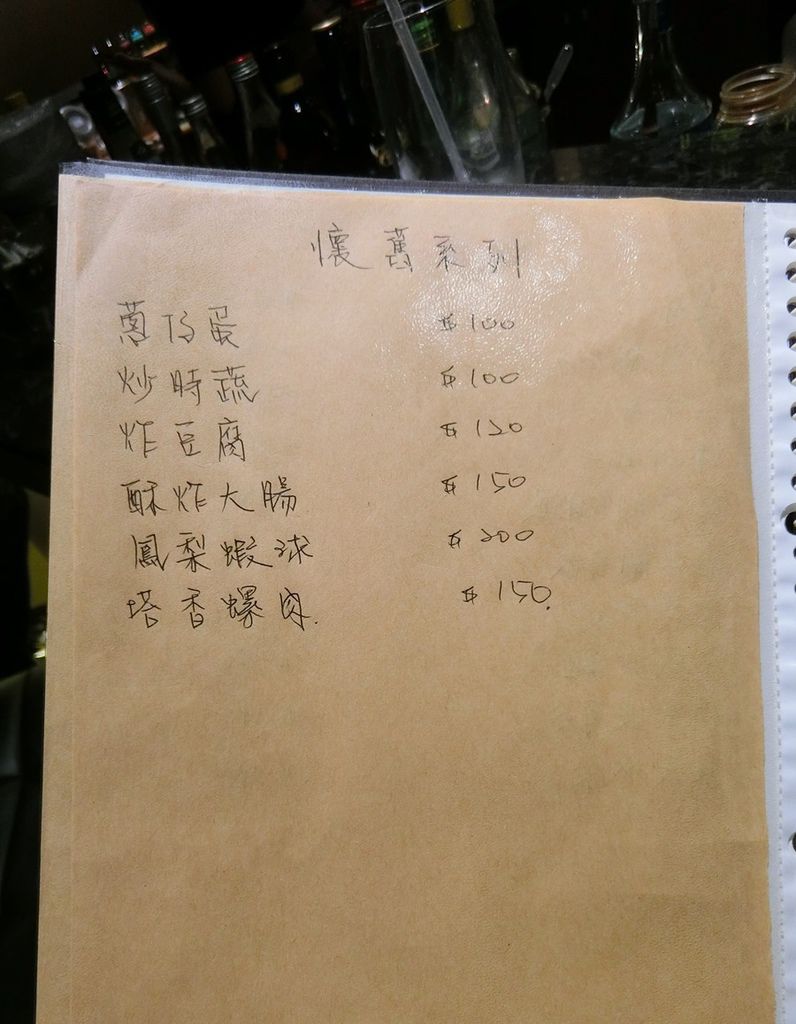 懷舊系列
蔥仔蛋 $100
炒時蔬 $100
炸豆腐 $120
酥炸大腸 $150
鳳梨蝦球 $200
塔香螺肉. $150.